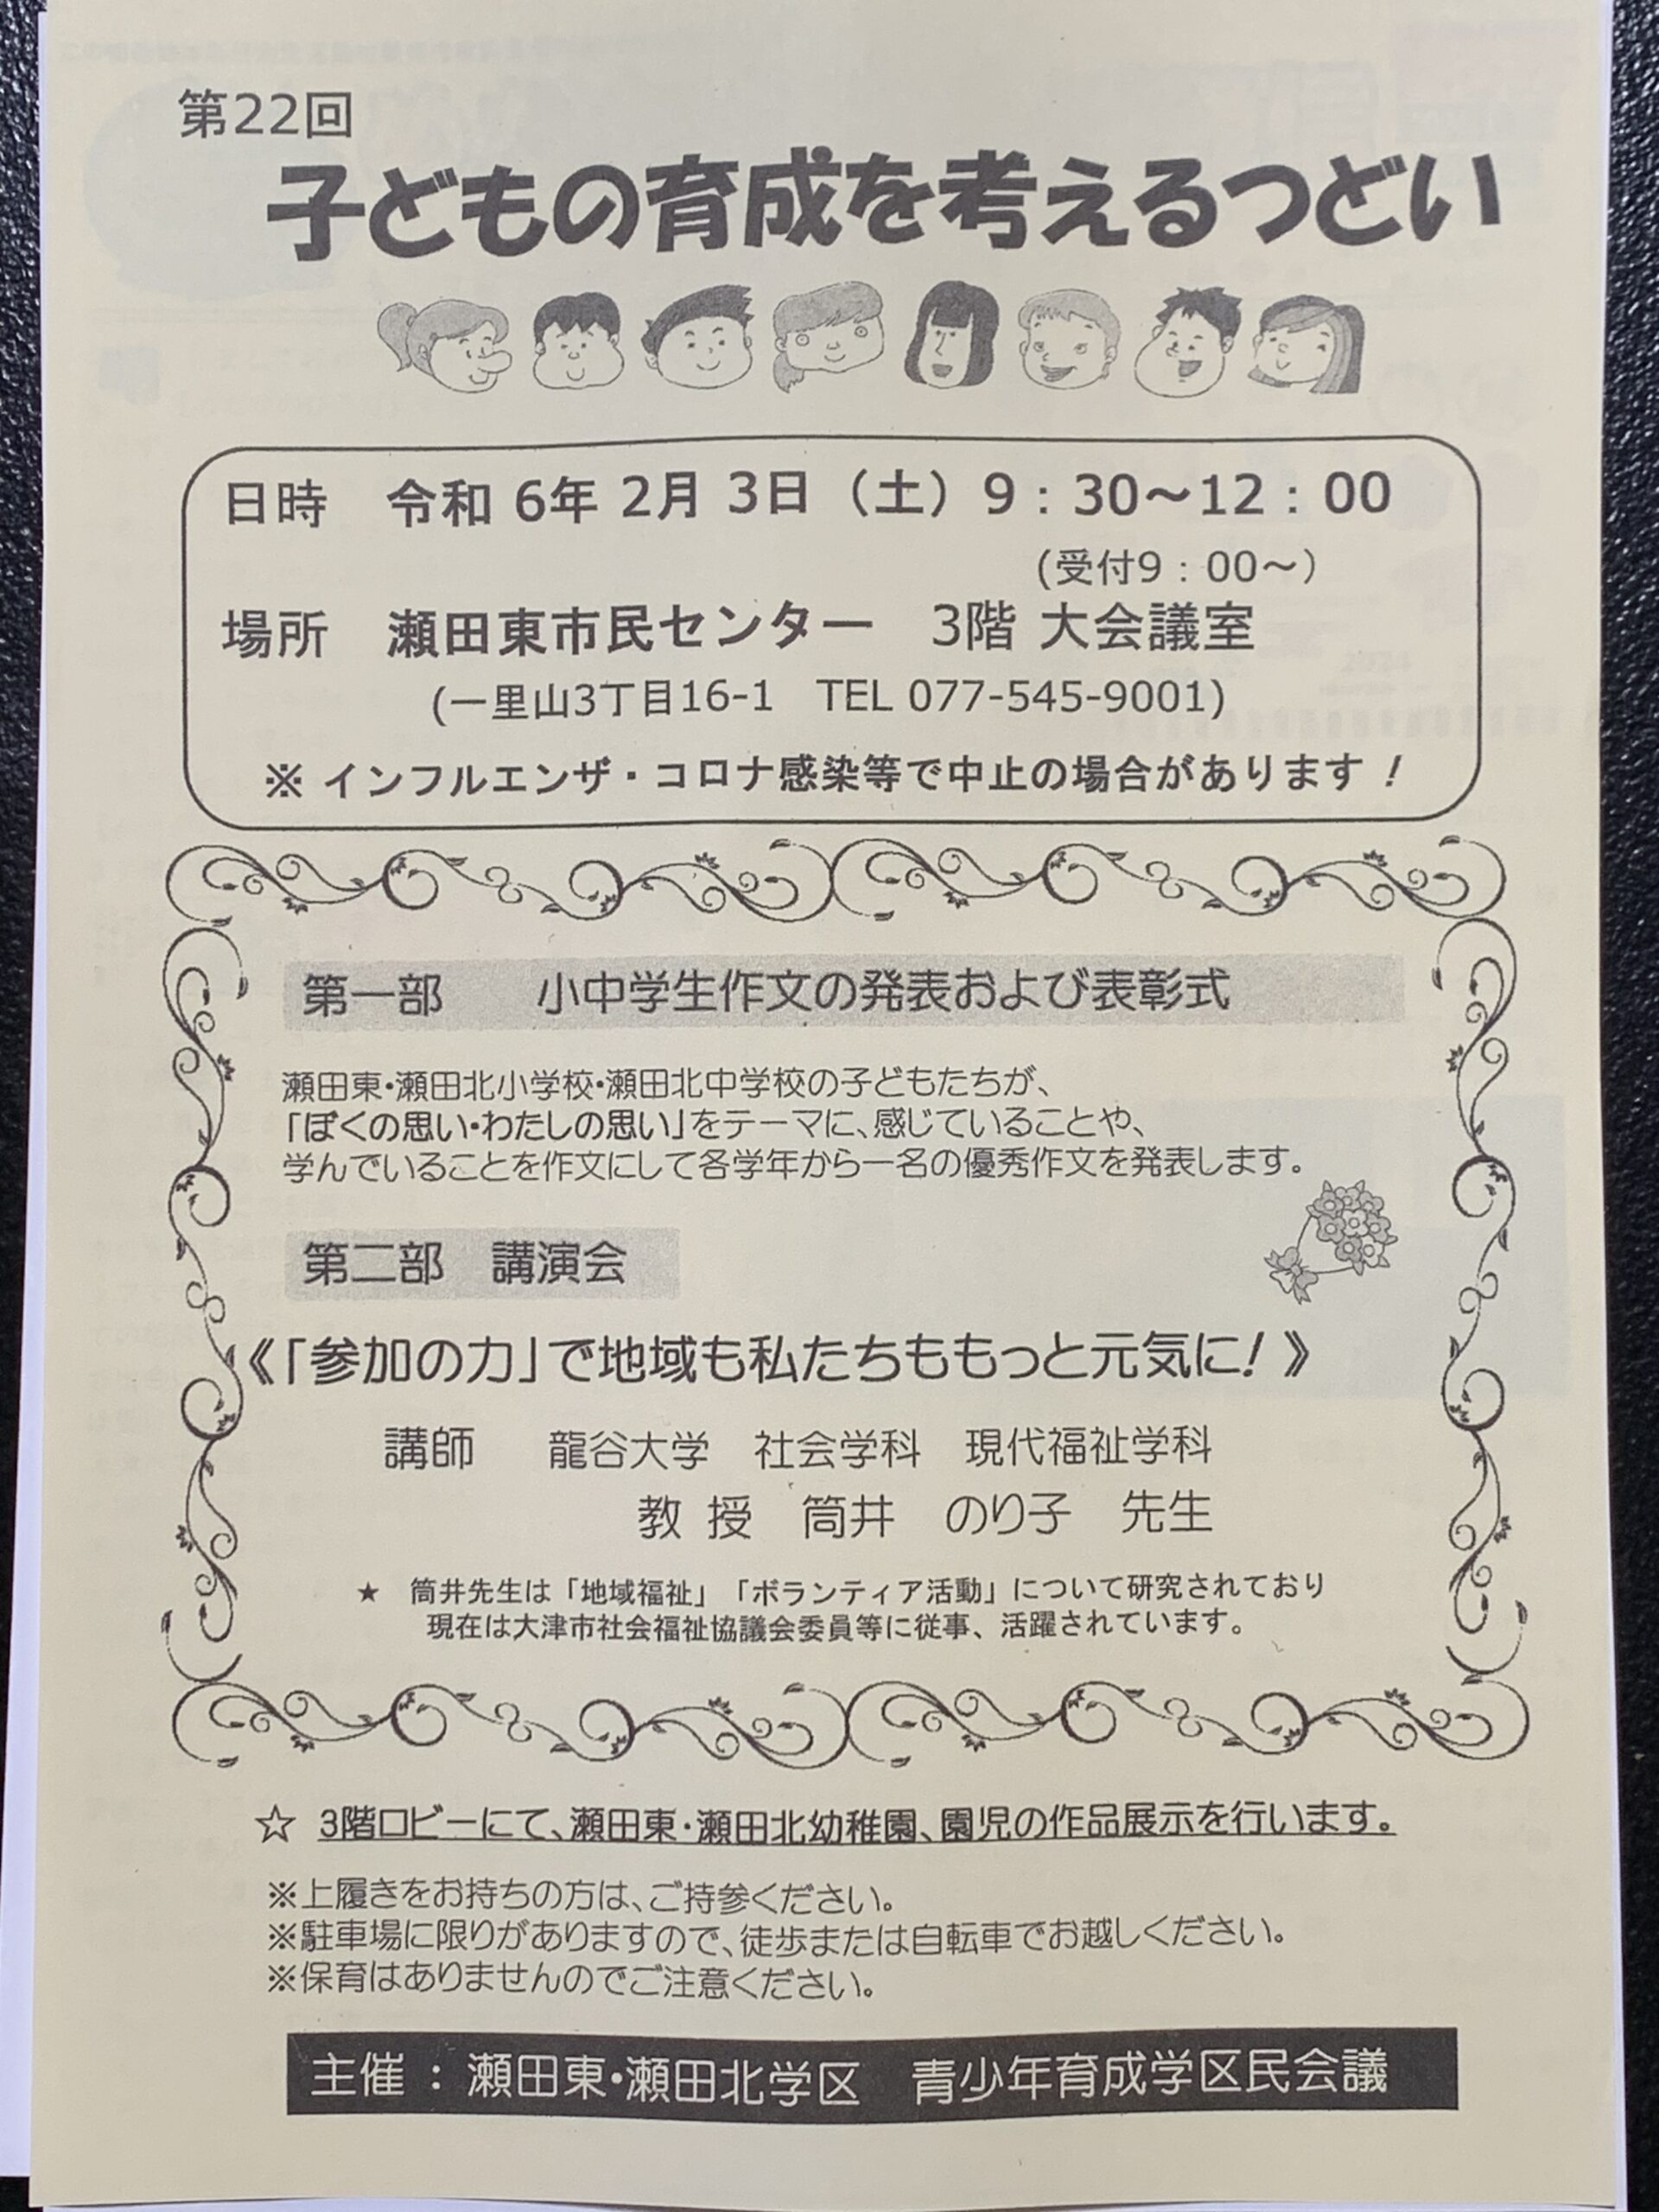 第22回
子どもの育成を考えるつどい
日時 令和 6年 2月 3日（土）9：30～12：00
(受付9：00～)
場所 瀬田東市民センター 3階 大会議室
(一里山3丁目16-1 TEL 077-545-9001)
※ インフルエンザ・コロナ感染等で中止の場合があります！
第一部 小中学生作文の発表および表彰式
瀬田東・瀬田北小学校・瀬田北中学校の子どもたちが、
「ぼくの思い・わたしの思い」をテーマに、感じていることや、
学んでいることを作文にして各学年から一名の優秀作文を発表します。
第二部 講演会
《「参加の力」で地域も私たちももっと元気に！》
講師 龍谷大学 社会学科 現代福祉学科
教 授 筒井 のり子 先生
★ 筒井先生は「地域福祉」「ボランティア活動」について研究されており
現在は大津市社会福祉協議会委員等に従事、活躍されています。
☆ 3階ロビーにて、瀬田東・瀬田北幼稚園、園児の作品展示を行います。
※上履きをお持ちの方は、ご持参ください。
※駐車場に限りがありますので、徒歩または自転車でお越しください。
※保育はありませんのでご注意ください。
主催：瀬田東・瀬田北学区 青少年育成学区民会議